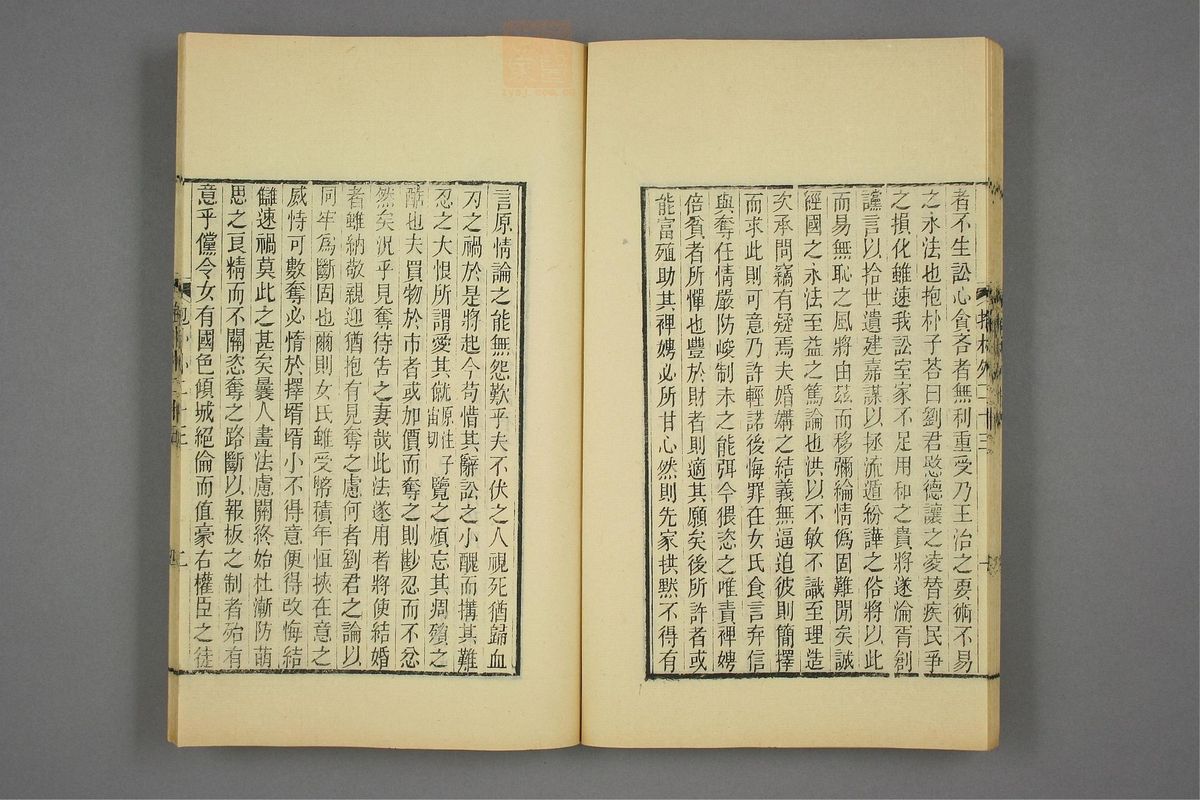 者不生訟心貪吝者無利重受乃王治之要術不易
之永法也抱朴子荅曰劉君愍德讓之凌替疾民爭
之損化雖速我訟室家不足用和之貴將遂淪胥創
讜言以拾世遺建嘉謀以拯流遁紛譁之俗將以此
而易無恥之風將由茲而移彌綸情僞固難閒矣誠
經國之永法至益之篤論也洪以不敏不識至理造
次承問竊有疑焉夫婚媾之結義無逼迫彼則簡擇
而求此則可意乃許輕諾後悔罪在女氏食言弃信
與奪任情嚴防峻制未之能弭今猥恣之唯責裨娉
倍貧者所憚也豐於財者則適其願矣後所許者或
能富殖助其裨娉必所甘心然則先家拱默不得有
抱朴外二十三
一
言原情論之能無怨歎乎夫不伏之人視死猶歸血
刃之禍於是將起今苟惜其辭訟之小醜而搆其難
忍之大恨所謂愛其飢原注宙切子覽之煩忘其凋殞之
酷也夫買物於市者或加價而奪之則尠忍而不忿
然矣況乎見奪待告之妻哉此法遂用者將使結婚
者雖納敬親迎猶抱有見奪之慮何者劉君之論以
同牢爲斷固也爾則女氏雖受幣積年恒挾在意之
威恃可數奪必惰於擇壻壻小不得意便得改悔結
讎速禍莫此之甚矣曩人畫法慮關終始杜漸防萌
思之良精而不關恣奪之路斷以報板之制者殆有
意乎儻令女有國色傾城絕倫而值豪右權臣之徒
二